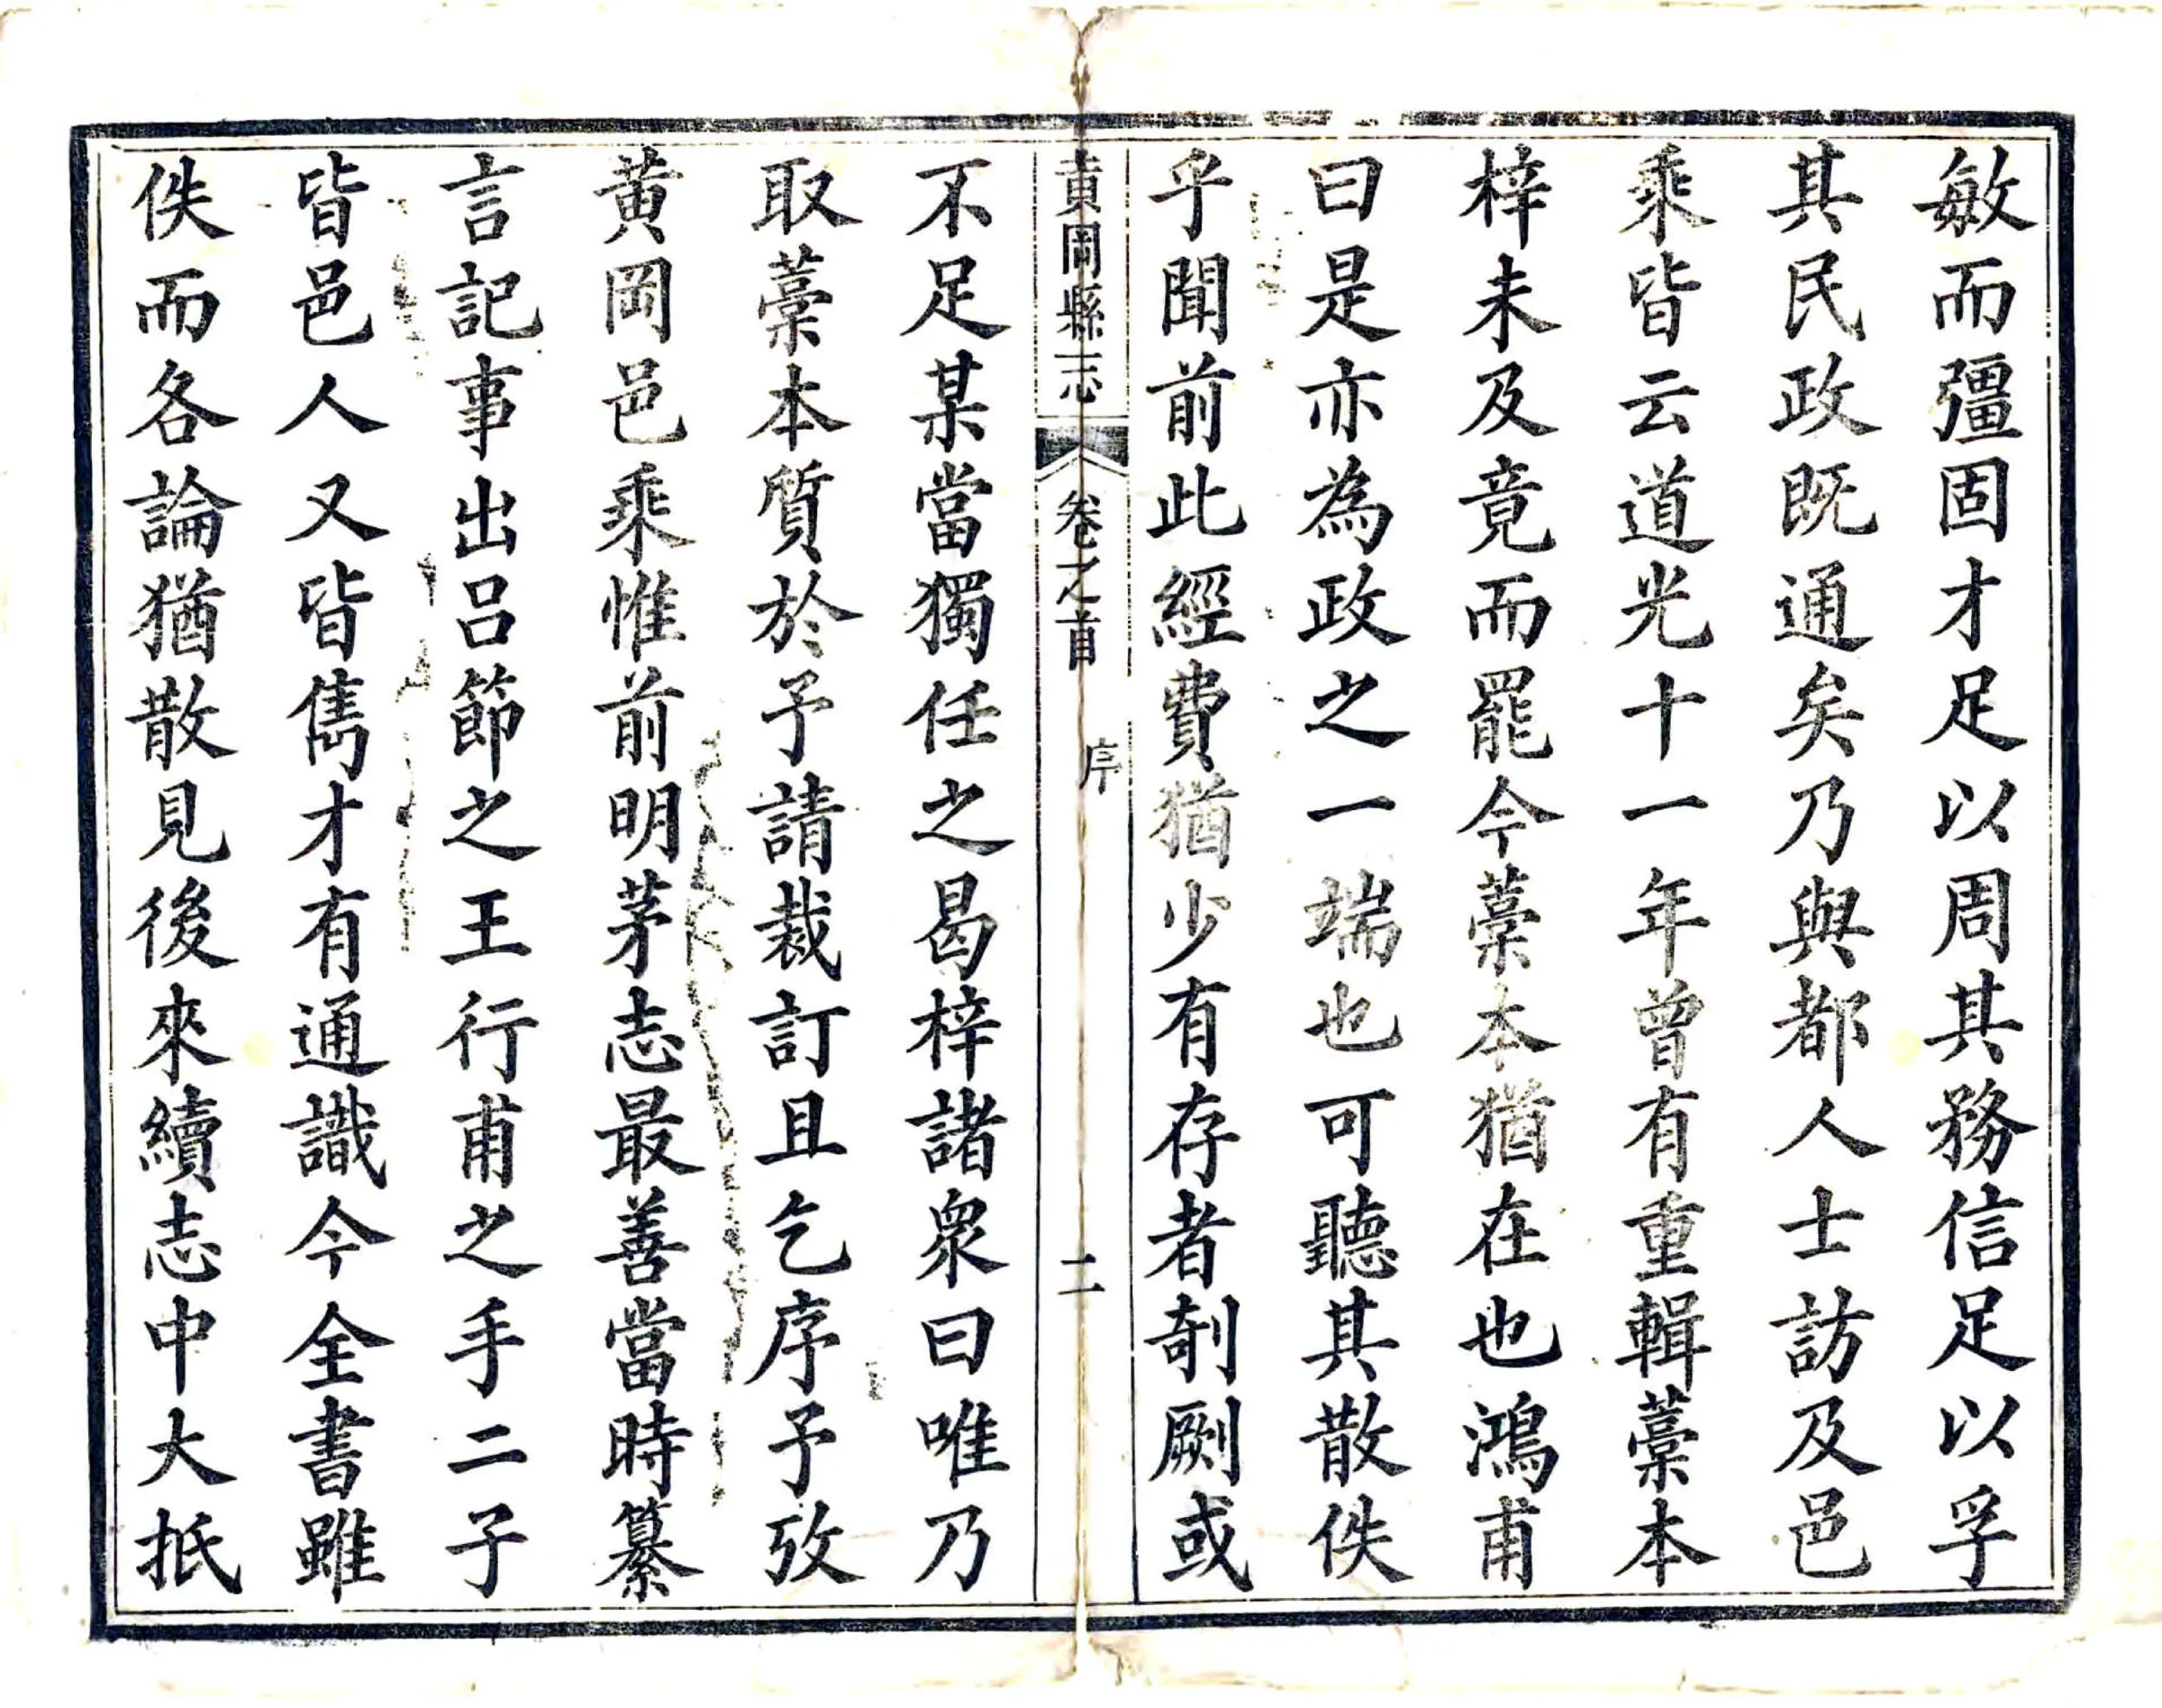 敏而彊固才足以周其務信足以孚
其民政既通矣乃與都人士訪及邑
乘皆云道光十一年曾有重輯藁本
梓未及竟而罷今藁本猶在也鴻甫
曰是亦為政之一端也可聽其散佚
乎聞前此經費猶少有存者剞劂或
黄岡縣志 卷之首 序 二
不足某當獨任之曷梓諸衆曰唯乃
取藁本質於予請裁訂且乞序予攷
黄岡邑乘惟前明茅志最善當時纂
言記事出呂節之王行甫之手二子
皆邑人又皆雋才有通識今全書雖
佚而各論猶散見後來續志中大抵